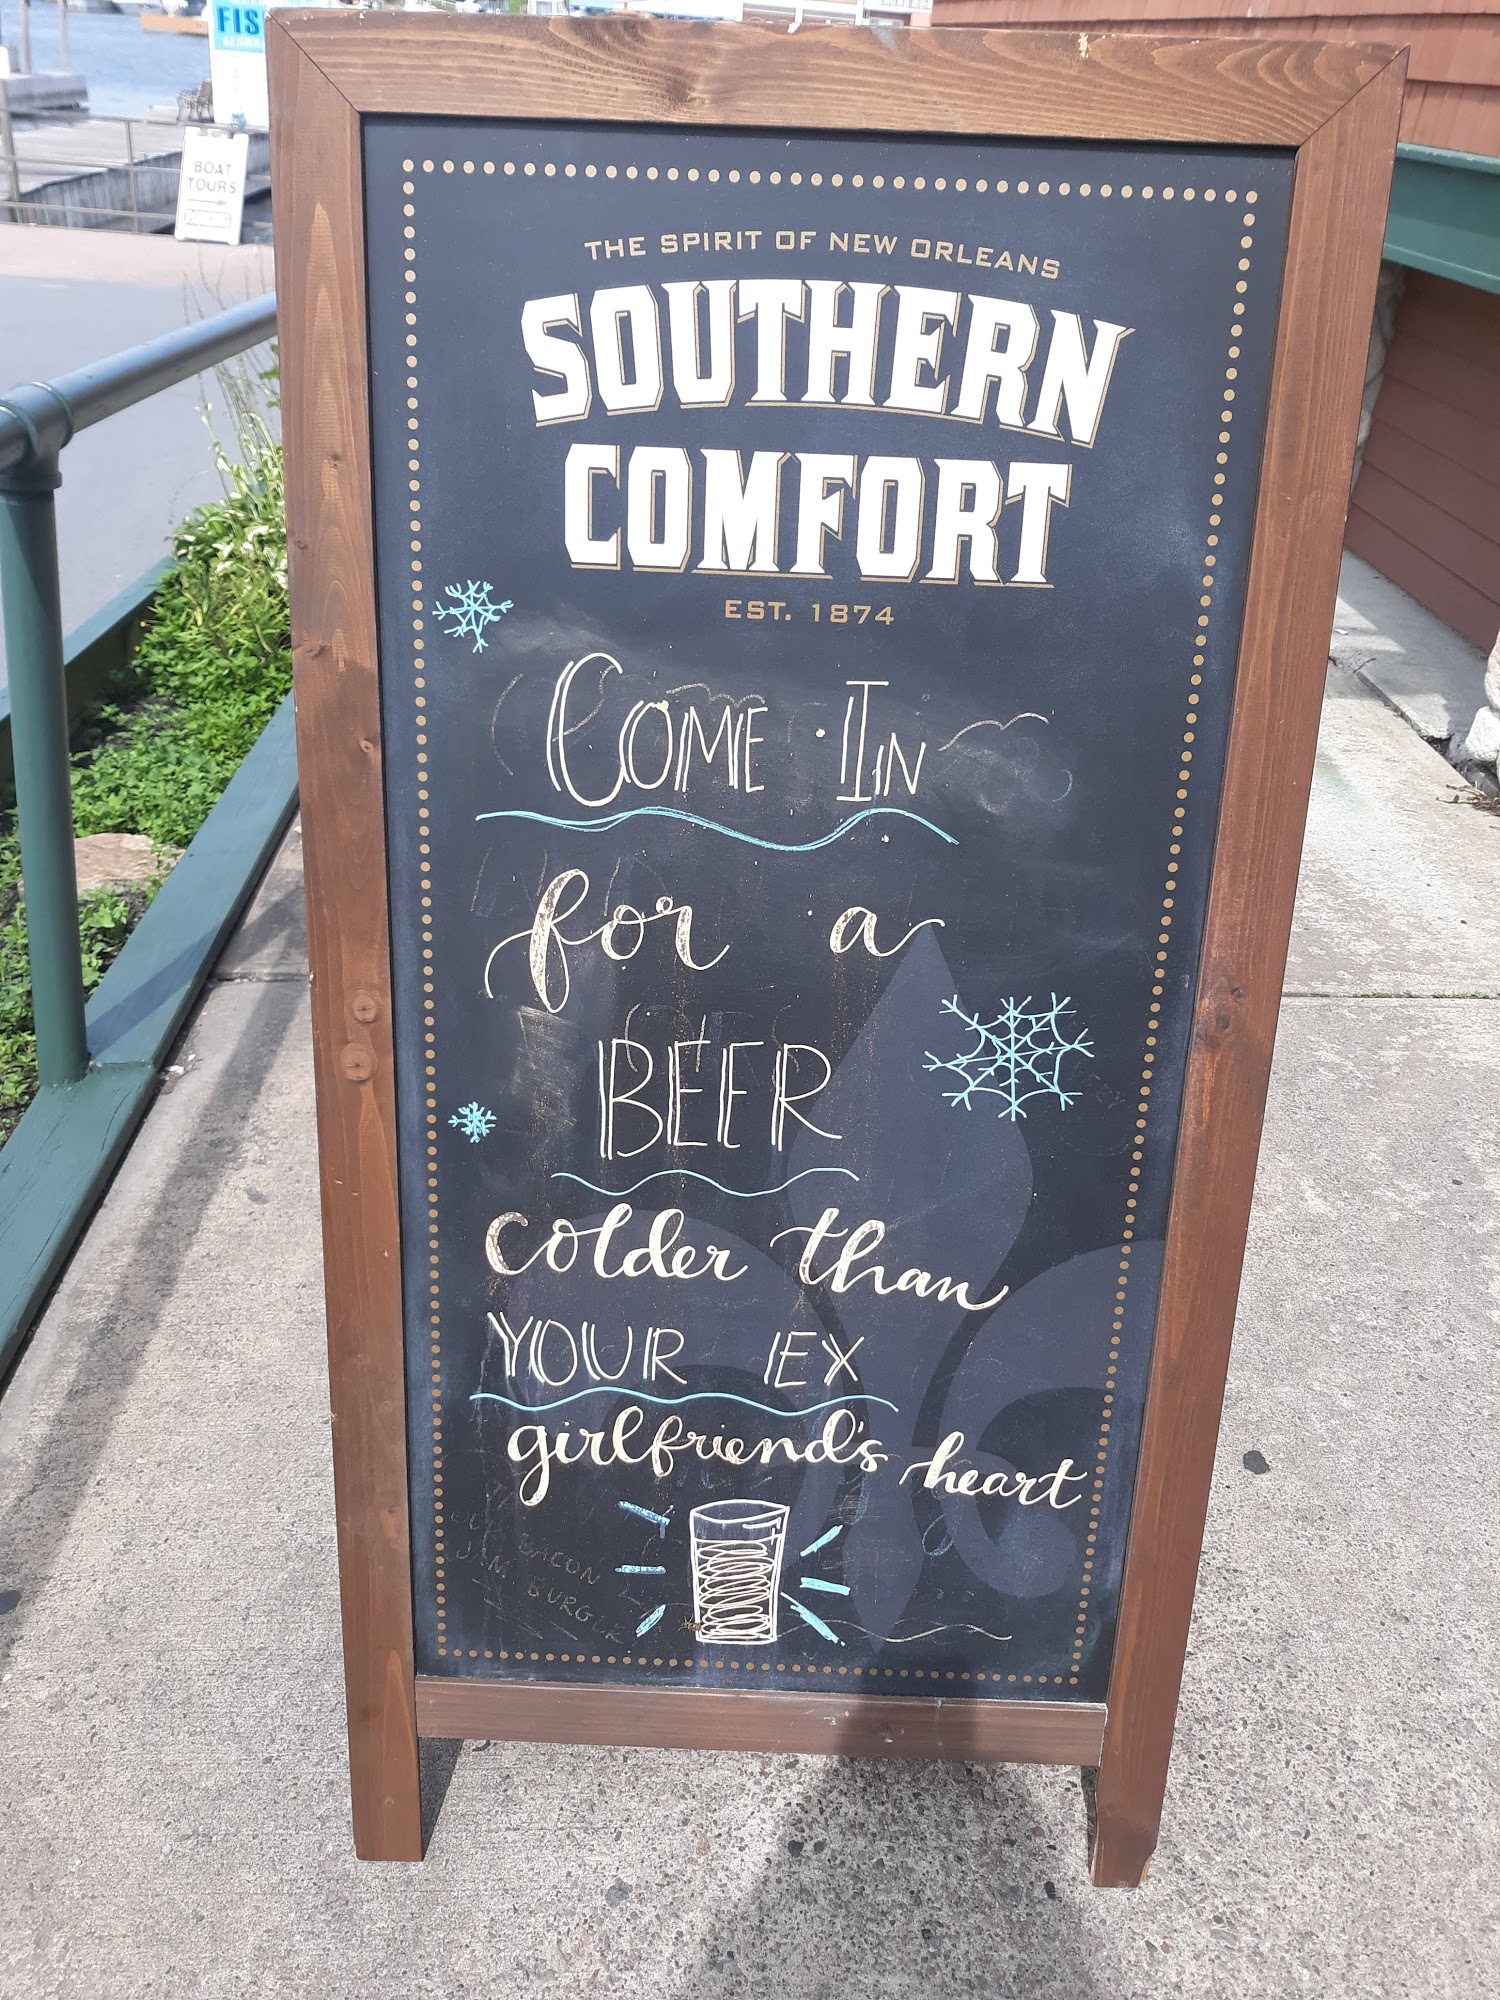 FIS
BOAT
TOURS
THE SPIRIT OF NEW ORLEANS
SOUTHERN
COMFORT
EST. 1874
COME IN
for a
BEER
colder than
YOUR EX
girlfriend's heart
BACON
JAM BURGER